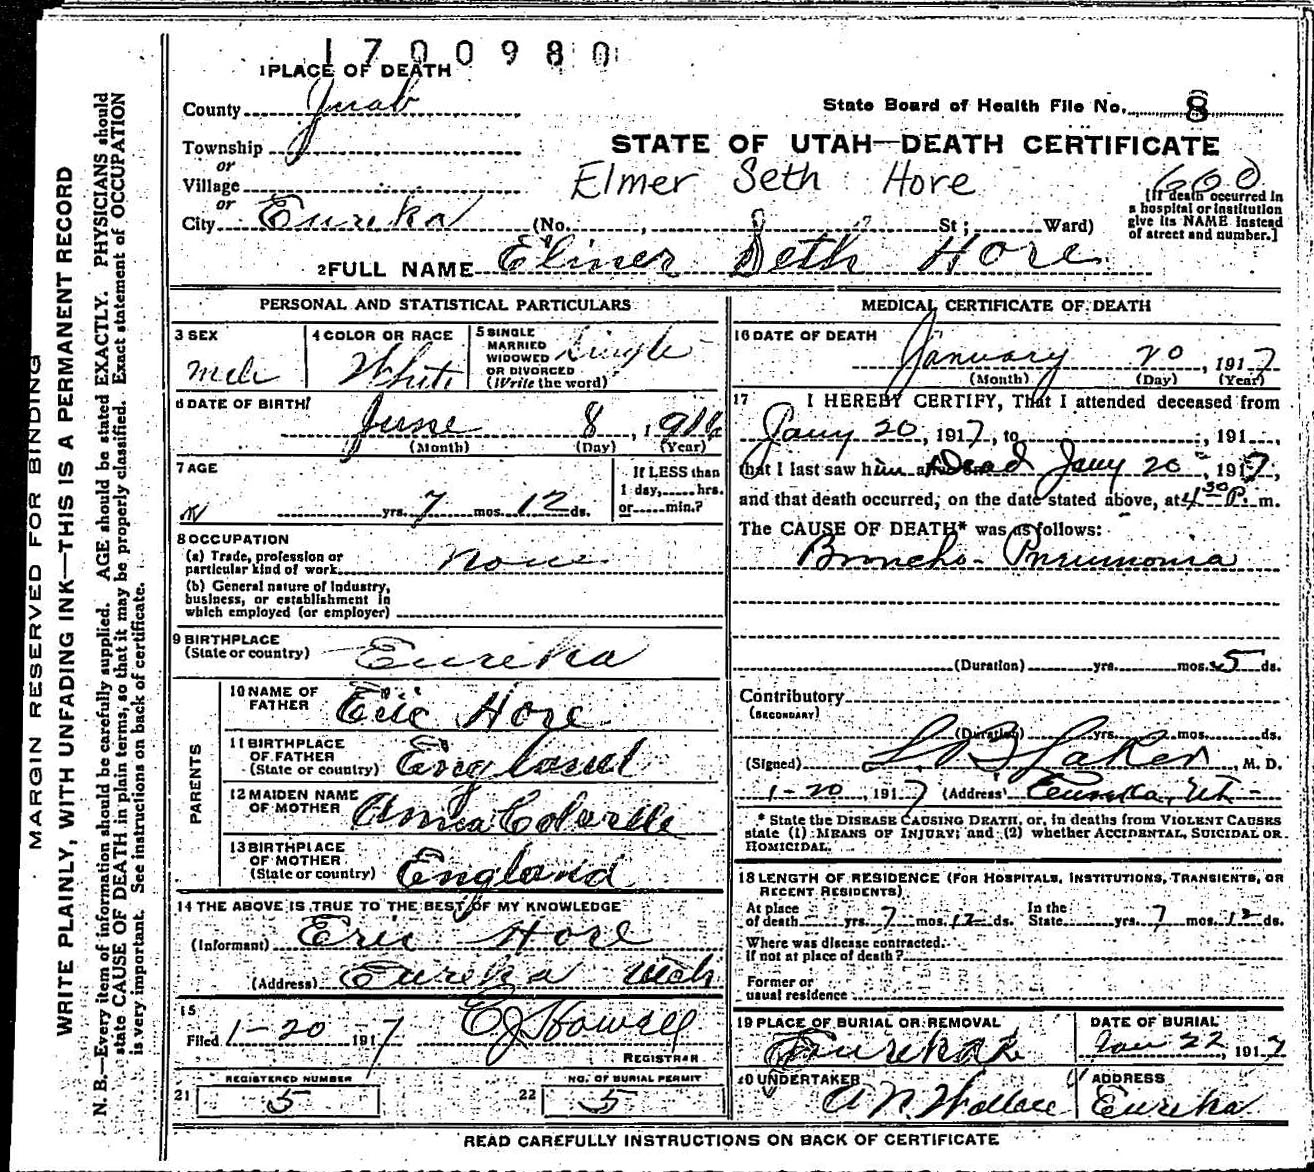 1700980
1 PLACE OF DEATH
County Juab
State Board of Health File No. 8
Township
or
STATE OF UTAH—DEATH CERTIFICATE
Village
or
Elmer Seth Hore
600
City Eureka (No. , St; Ward)
[If death occurred in
a hospital or institution
give its NAME instead
of street and number.]
2 FULL NAME Elmer Seth Hore
PERSONAL AND STATISTICAL PARTICULARS
3 SEX
Male
4 COLOR OR RACE
White
5 SINGLE
MARRIED
WIDOWED
OR DIVORCED
(Write the word)
Single
6 DATE OF BIRTH
June 8, 1916
(Month) (Day) (Year)
7 AGE
yrs. 7 mos. 12 ds.
If LESS than
1 day, hrs.
or min.?
8 OCCUPATION
(a) Trade, profession or
particular kind of work None
(b) General nature of industry,
business, or establishment in
which employed (or employer)
9 BIRTHPLACE
(State or country) Eureka
PARENTS
10 NAME OF
FATHER Eric Hore
11 BIRTHPLACE
OF FATHER
(State or country) England
12 MAIDEN NAME
OF MOTHER
13 BIRTHPLACE
OF MOTHER
(State or country) England
14 THE ABOVE IS TRUE TO THE BEST OF MY KNOWLEDGE
(Informant) Eric Hore
(Address) Eureka Utah
15
Filed 1-20 1917 C J Howell
REGISTRAR
REGISTERED NUMBER
21 5
NO. OF BURIAL PERMIT
22 5
MEDICAL CERTIFICATE OF DEATH
16 DATE OF DEATH
January 20, 1917
(Month) (Day) (Year)
17 I HEREBY CERTIFY, That I attended deceased from
Jany 20, 1917, to , 191 ,
that I last saw him alive on Dead Jany 20, 1917
and that death occurred, on the date stated above, at 4 30 P. m.
The CAUSE OF DEATH* was as follows:
Broncho-Pneumonia
(Duration) yrs. mos. 5 ds.
Contributory
(SECONDARY)
(Duration) yrs. mos. ds.
(Signed) , M. D.
1-20, 1917 (Address) Eureka, Ut-
* State the DISEASE CAUSING DEATH, or, in deaths from VIOLENT CAUSES
state (1) MEANS OF INJURY; and (2) whether ACCIDENTAL, SUICIDAL OR
HOMICIDAL.
18 LENGTH OF RESIDENCE (FOR HOSPITALS, INSTITUTIONS, TRANSIENTS, OR
RECENT RESIDENTS)
At place
of death yrs. 7 mos. 12 ds.
In the
State yrs. 7 mos. 12 ds.
Where was disease contracted.
If not at place of death?
Former or
usual residence
19 PLACE OF BURIAL OR REMOVAL
Eureka
DATE OF BURIAL
Jan 22, 1917
20 UNDERTAKER
A N Wallace
ADDRESS
Eureka
READ CAREFULLY INSTRUCTIONS ON BACK OF CERTIFICATE
MARGIN RESERVED FOR BINDING
WRITE PLAINLY, WITH UNFADING INK—THIS IS A PERMANENT RECORD
N. B.—Every item of information should be carefully supplied. AGE should be stated EXACTLY. PHYSICIANS should
state CAUSE OF DEATH in plain terms, so that it may be properly classified. Exact statement of OCCUPATION
is very important. See instructions on back of certificate.